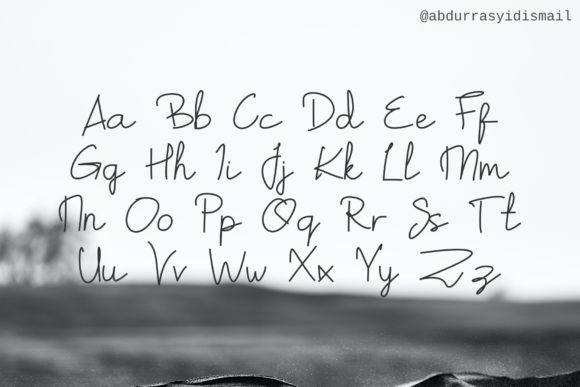 @abdurrasyidismail
Aa Bb Cc Dd Ee Ff
Gg Hh Ii Jj Kk Ll Mm
Nn Oo Pp Qq Rr Ss Tt
Uu Vv Ww Xx Yy Zz